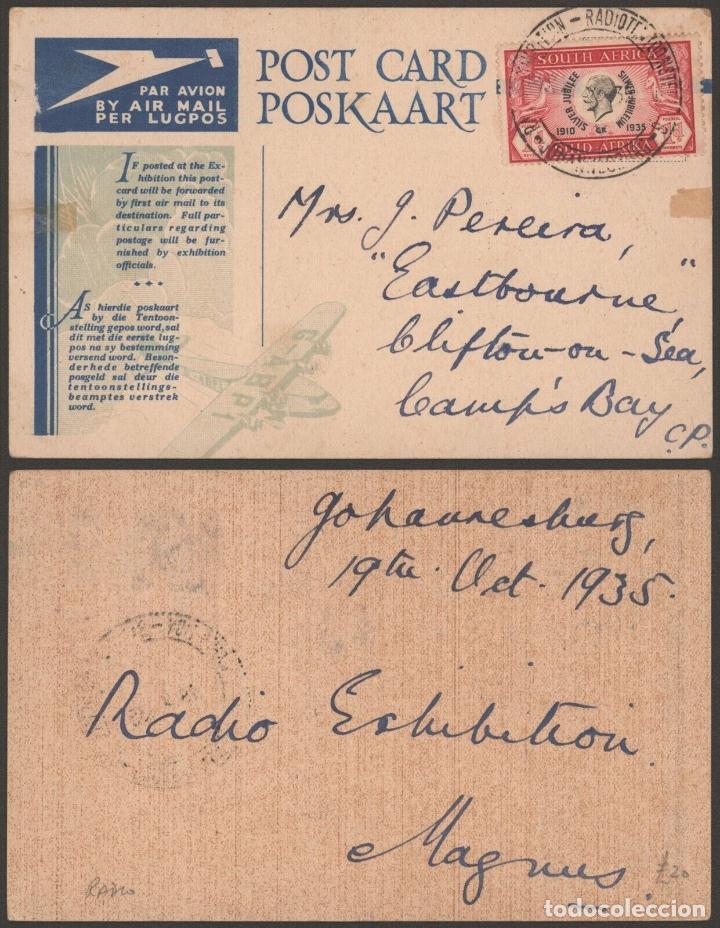 PAR AVION
BY AIR MAIL
PER LUGPOS
POST CARD
POSKAART
IF posted at the Ex-
hibition this post-
card will be forwarded
by first air mail to its
destination. Full par-
ticulars regarding
postage will be fur-
nished by exhibition
officials.
AS hierdie poskaart
by die Tentoon-
stelling gepos word, sal
dit met die eerste lug-
pos na sy bestemming
versend word. Beson-
derhede betreffende
posgeld sal deur die
tentoonstellings-
beamptes verstrek
word.
SOUTH AFRICA
SILVER JUBILEE
SILWER JUBILEUM
1910
1935
SUID-AFRIKA
Mrs. J. Pereira,
"Eastbourne,"
Clifton-on-Sea,
Camp's Bay
C.P.
Johannesburg,
19th Oct. 1935.
Radio Exhibition.
Magnus.
RADIO
£20
todocoleccion